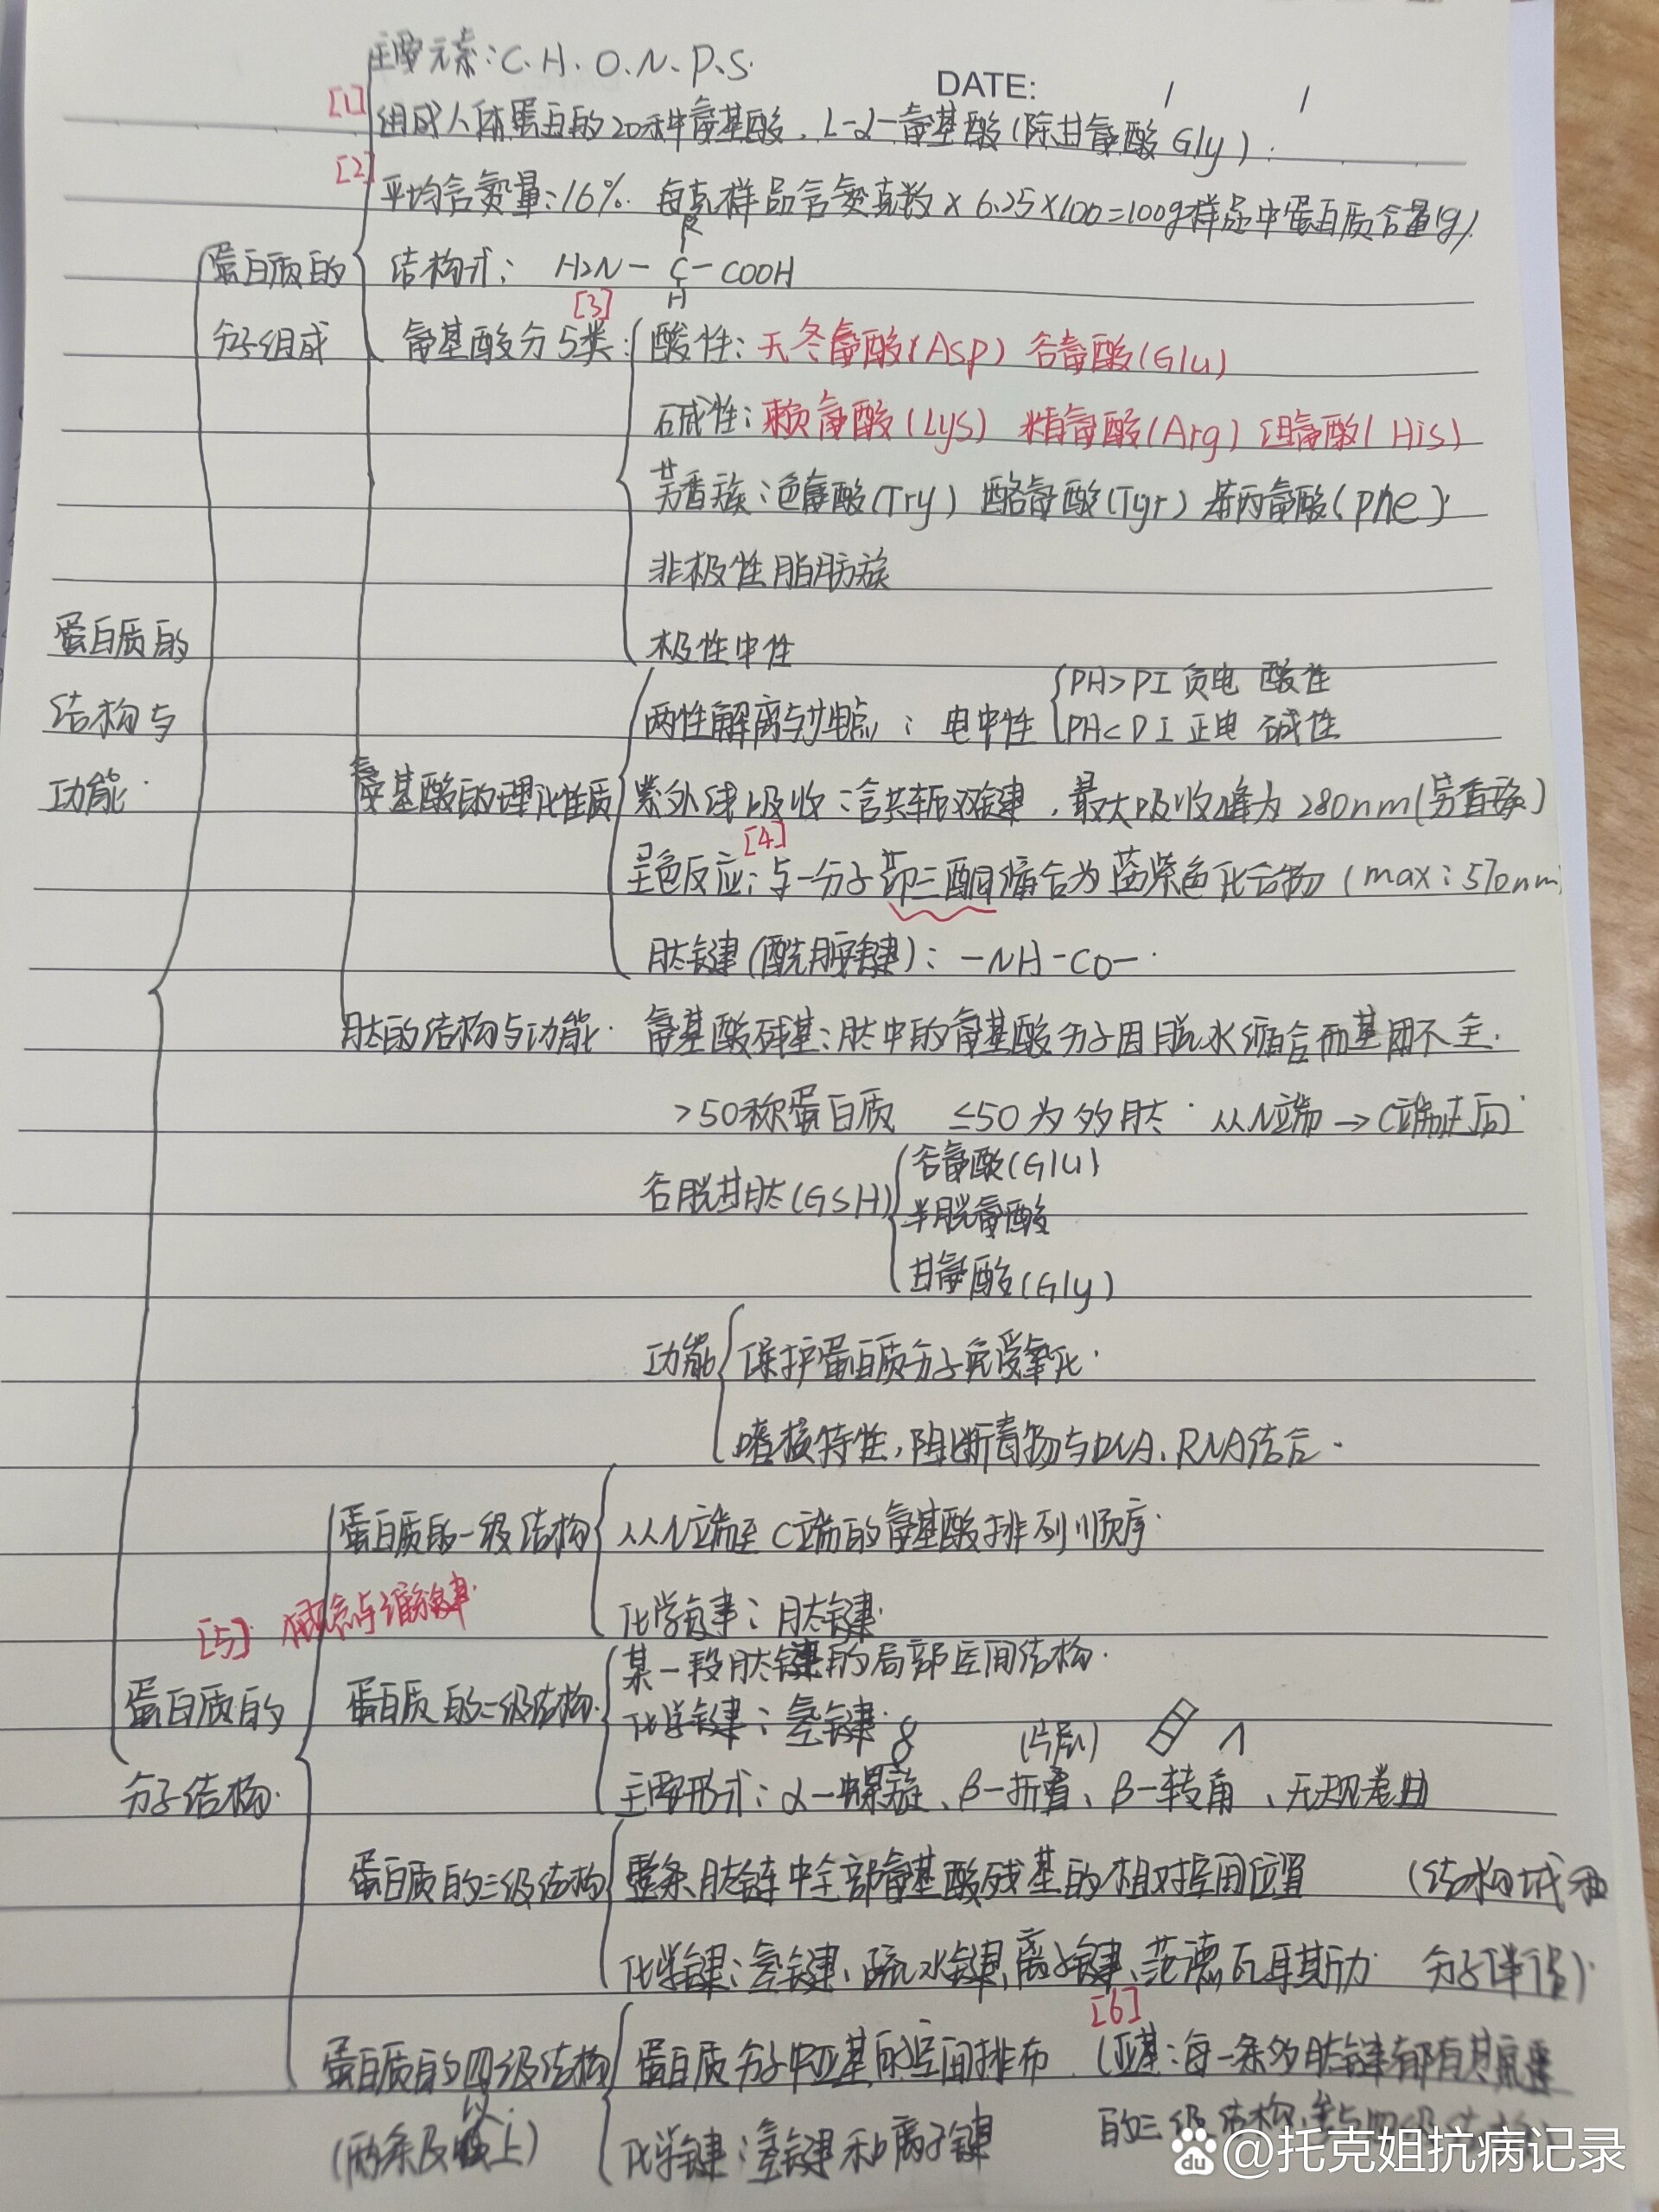 主要元素：C.H.O.N.P.S.
DATE: / /
[1]
组成人体蛋白的20种氨基酸、L-α-氨基酸(除甘氨酸 Gly).
[2]
平均含氮量：16%. 每克样品含氮克数×6.25×100=100g样品中蛋白质含量(g).
R
蛋白质的
结构式： H2N-C-COOH
H
[3]
分子组成
氨基酸分5类：
酸性：天冬氨酸(Asp) 谷氨酸(Glu)
碱性：赖氨酸(Lys) 精氨酸(Arg) 组氨酸(His)
芳香族：色氨酸(Try) 酪氨酸(Tyr) 苯丙氨酸(phe)
非极性脂肪族
蛋白质的
极性中性
结构与
两性解离与
点：电中性
PH>PI 负电 酸性
PH<PI 正电 碱性
功能.
氨基酸的理化性质
紫外线吸收：含共轭双键，最大吸收峰为280nm(芳香族)
[4]
呈色反应：与一分子茚三酮缩合为蓝紫色化合物(max：570nm
肽键(酰胺键)：-NH-CO-.
肽的结构与功能. 氨基酸残基：肽中的氨基酸分子因脱水缩合而基团不全.
>50称蛋白质 ≤50为多肽. 从N端→C端正向.
谷胱甘肽(GSH)
谷氨酸(Glu)
半胱氨酸
甘氨酸(Gly)
功能
保护蛋白质分子免受氧化.
嗜核特性，阻断毒物与DNA、RNA结合.
蛋白质的一级结构
从N端至C端的氨基酸排列顺序.
化学键：肽键.
[5] 概念与维
键.
某一段肽键的局部空间结构.
蛋白质的
蛋白质的二级结构.
化学键：氢键.
(片层)
分子结构.
主要形式：α-螺旋、β-折叠、β-转角、无规卷曲
蛋白质的三级结构
整条肽链中全部氨基酸残基的相对空间位置 (结构域和
化学键：氢键、疏水键、离子键、范德瓦耳斯力. 分子伴侣).
[6]
蛋白质的四级结构
蛋白质分子中亚基的空间排布.(亚基：每一条多肽链都有其完整
(两条及以上)
的三级结构，
化学键：氢键和离子键
Bai du @托克姐抗病记录